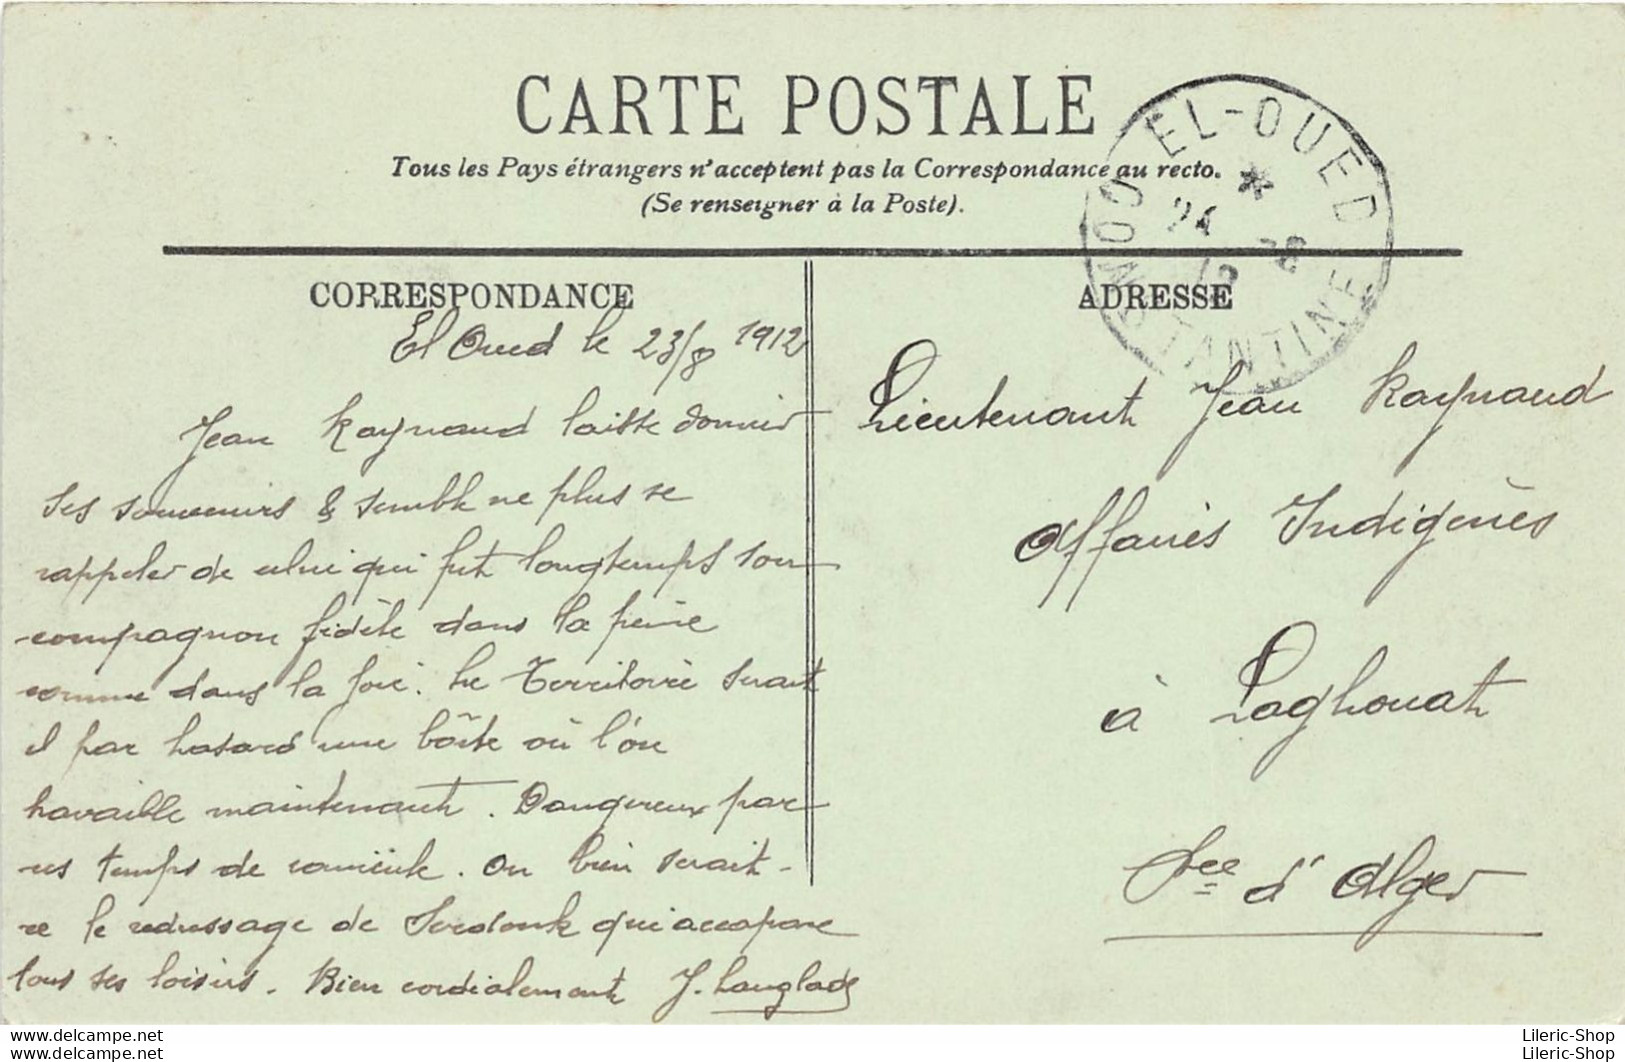 CARTE POSTALE
Tous les Pays étrangers n'acceptent pas la Correspondance au recto.
(Se renseigner à la Poste).
EL-OUED
CONSTANTINE
24 -8
12
CORRESPONDANCE
El Oued le 23/8 1912
Jean Raynaud laisse dormir
ses souvenirs & semble ne plus se
rappeler de celui qui fut longtemps son
compagnon fidèle dans la peine
comme dans la joie. Le Territoire serait
il par hasard une boîte où l'on
travaille maintenant. Dangereux par
ces temps de canicule. Ou bien serait-
ce le redressage de qui accapare
tous ses loisirs. Bien cordialement J. Langlade
ADRESSE
Lieutenant Jean Raynaud
Affaires Indigènes
à Laghouat
Pce d'Alger
Lileric-Shop
Lileric-Shop
Lileric-Shop
Lileric-Shop